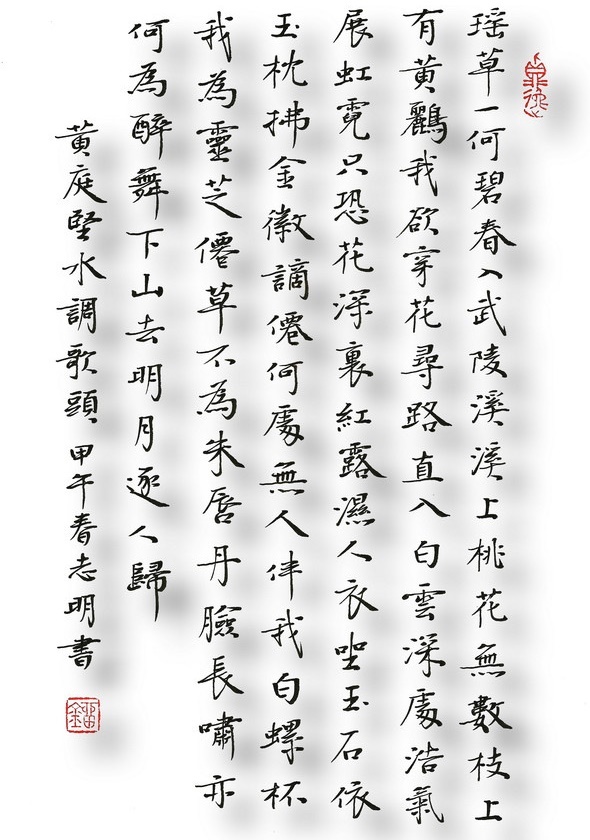 瑶草一何碧春入武陵溪溪上桃花無數枝上
有黄鸝我欲穿花尋路直入白雲深處浩氣
展虹霓只恐花深裏紅露濕人衣坐玉石依
玉枕拂金徽謫僊何處無人伴我白螺杯
我為靈芝僊草不為朱唇丹臉長嘯亦
何為醉舞下山去明月逐人歸
黄庭堅水調歌頭 甲午春志明書